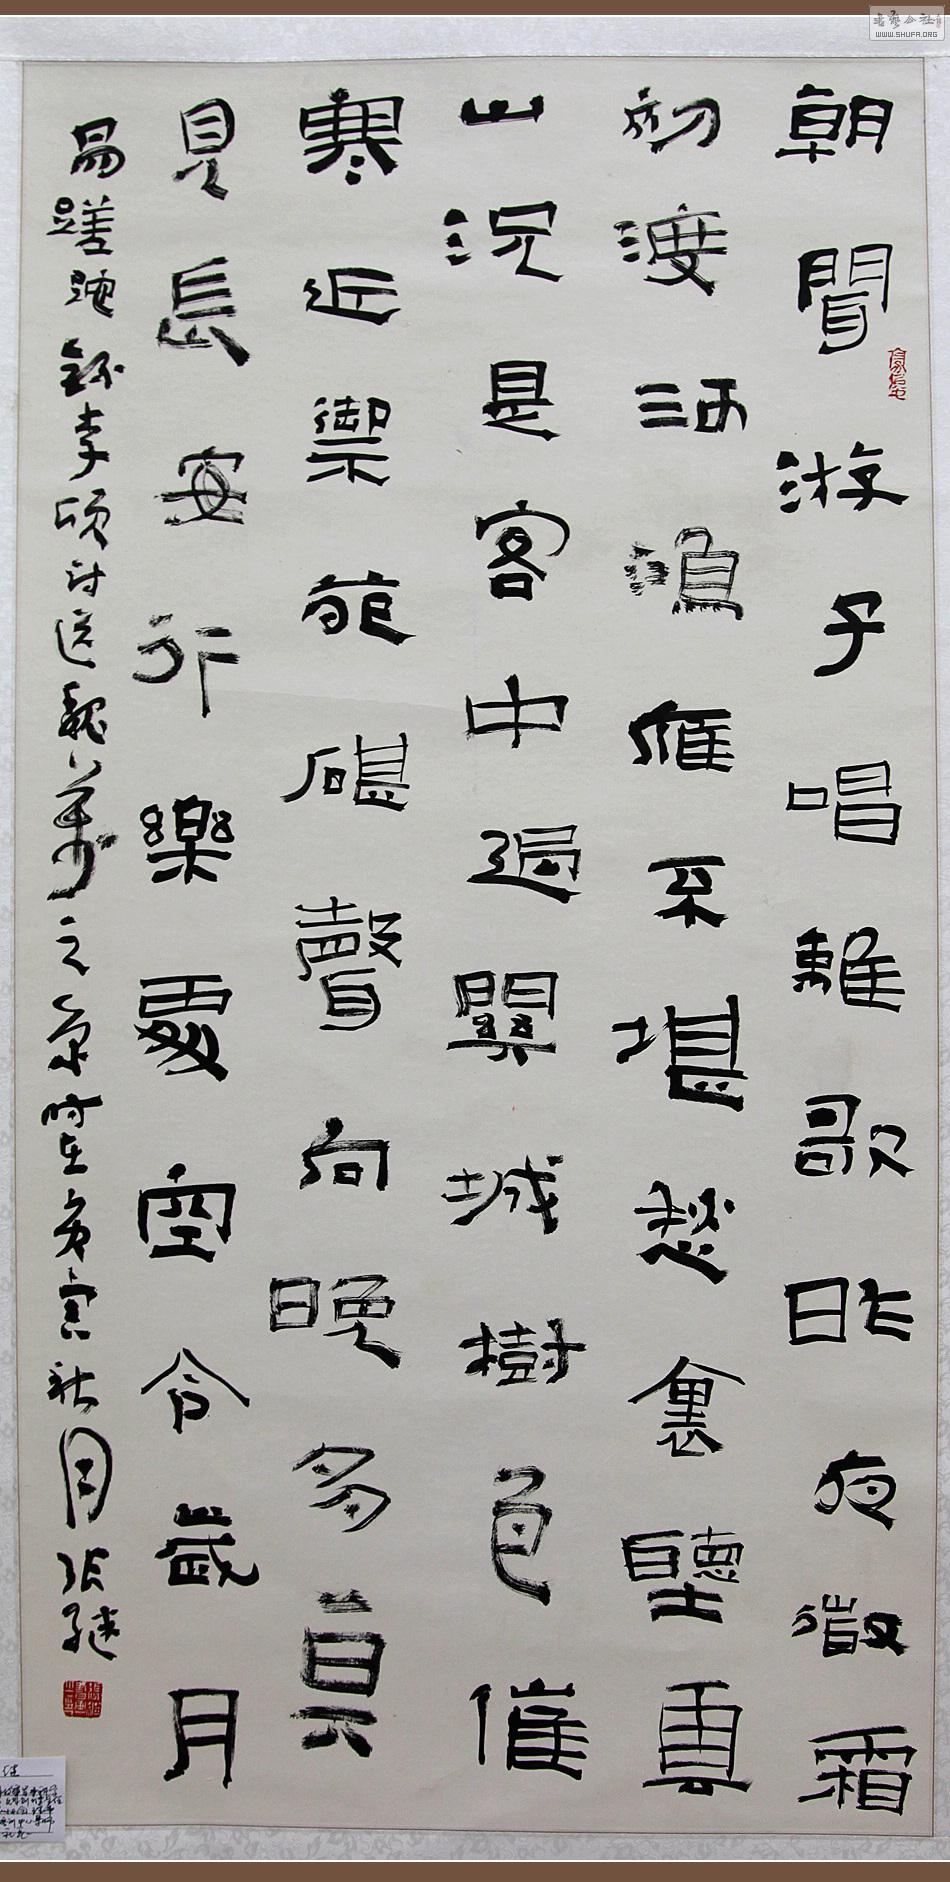 朝聞游子唱離歌昨夜微霜
初渡河鴻雁不堪愁裏聽雲
山況是客中過關城樹色催
寒近禦苑碪聲向晚多莫
見長安行樂處空令歲月
易蹉跎錄李頎詩送魏萬之京時在庚寅秋月張継
書藝公社
WWW.SHUFA.ORG